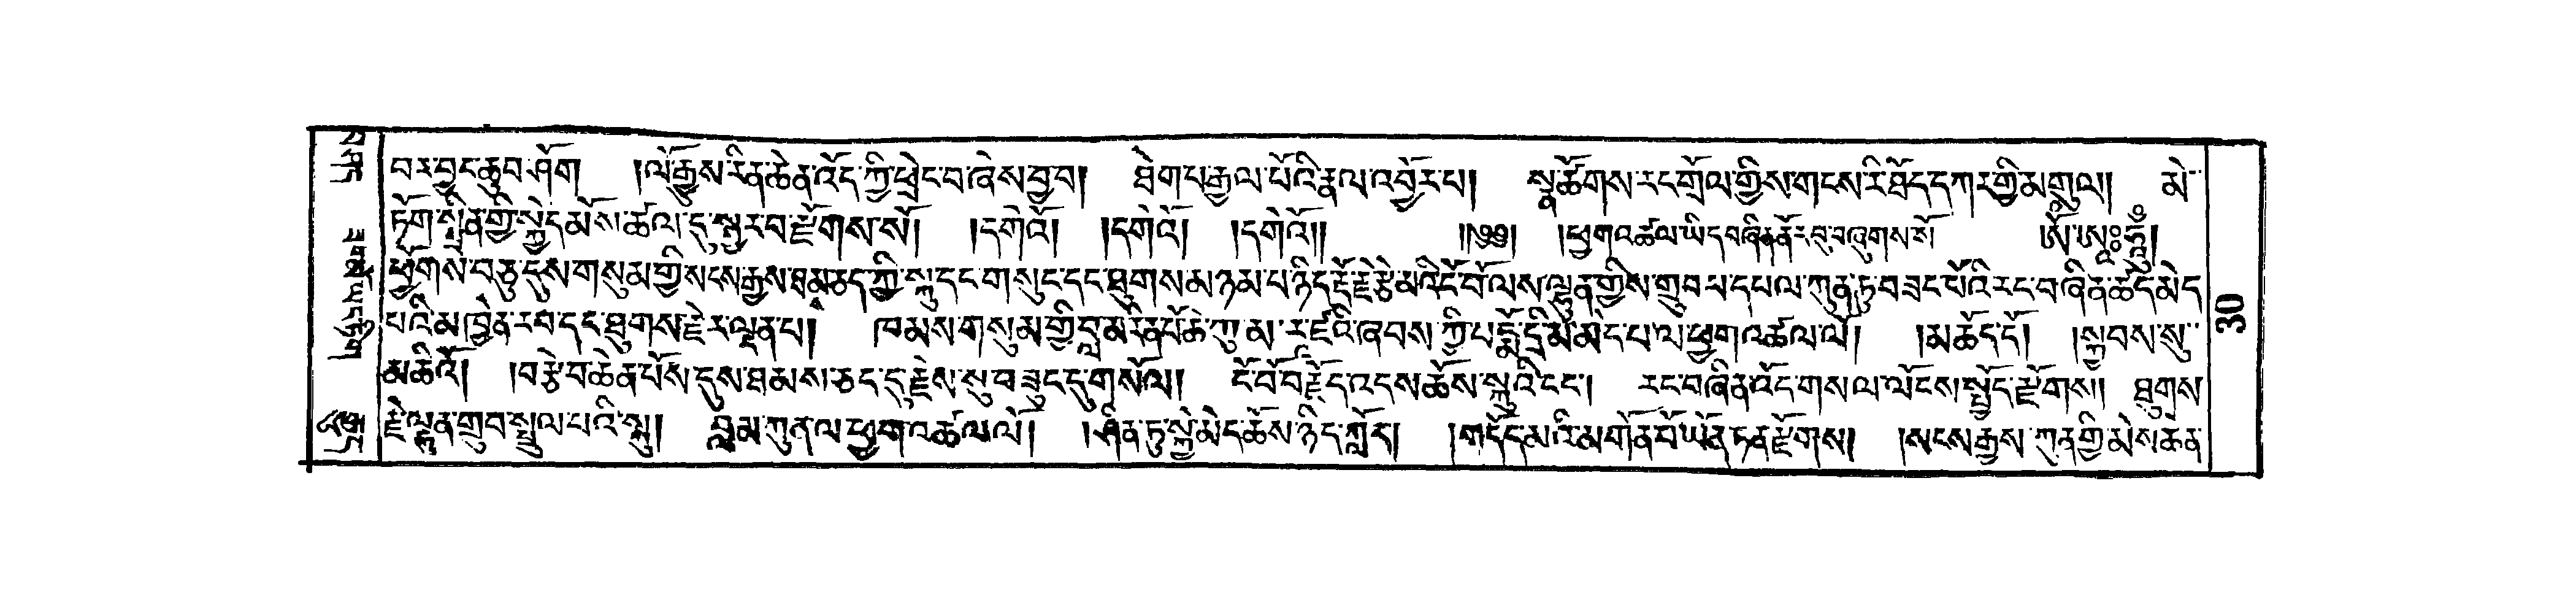 བར་བྱང་ཆུབ་ཤོག །ལོ་རྒྱུས་རིན་ཆེན་འོད་ཀྱི་ཕྲེང་བ་ཞེས་བྱ་བ། ཐེག་པ་རྒྱལ་པོའི་རྣལ་འབྱོར་པ། སྣ་ཚོགས་རང་གྲོལ་གྱིས་གངས་རི་ཐོད་དཀར་གྱི་མགུལ། མེ་
ཏོག་སྤྲིན་གྱི་སྐྱེད་མོས་ཚལ་དུ་སྦྱར་བ་རྫོགས་སོ། །དགེའོ། །དགེའོ། །དགེའོ།། །།༄༅། །ཕྱག་འཚལ་ཡིད་བཞིན་ནོར་བུ་བཞུགས་སོ། ཨོཾ་ཨཱཿཧཱུྃ།
ཕྱོགས་བཅུ་དུས་གསུམ་གྱི་སངས་རྒྱས་ཐམས་ཅད་ཀྱི་སྐུ་དང་གསུང་དང་ཐུགས་མ་ཉམ་པ་ཉིད་རྡོ་རྗེ་རྩེ་མའི་ངོ་བོ་ལས་ལྷུན་གྱིས་གྲུབ་པ་དཔལ་ཀུན་ཏུ་བཟང་པོའི་རང་བཞིན་ཚད་མེད
པའི་མཁྱེན་རབ་དང་ཐུགས་རྗེར་ལྡན་པ། ཁམས་གསུམ་གྱི་བླ་མ་རིན་པོ་ཆེ་ཀུ་མ་ར་ཛའི་ཞབས་ཀྱི་པདྨོ་དྲི་མ་མེད་པ་ལ་ཕྱག་འཚལ་ལོ། །མཆོད་དོ། །སྐྱབས་སུ་
མཆིའོ། །བརྩེ་བ་ཆེན་པོས་དུས་ཐམས་ཅད་དུ་རྗེས་སུ་བཟུང་དུ་གསོལ། ངོ་བོ་བརྗོད་འདས་ཆོས་སྐུའི་ངང་། རང་བཞིན་འོད་གསལ་ལོངས་སྤྱོད་རྫོགས། ཐུགས་
རྗེ་ལྷུན་གྲུབ་སྤྲུལ་པའི་སྐུ། བླ་མ་ཀུན་ལ་ཕྱག་འཚལ་ལོ། །ཤིན་ཏུ་སྐྱེ་མེད་ཆོས་ཉིད་ཀློང་། །གདོད་མའི་མགོན་པོ་ཡོན་ཏན་རྫོགས། །སངས་རྒྱས་ཀུན་གྱི་མེས་ཆེན་